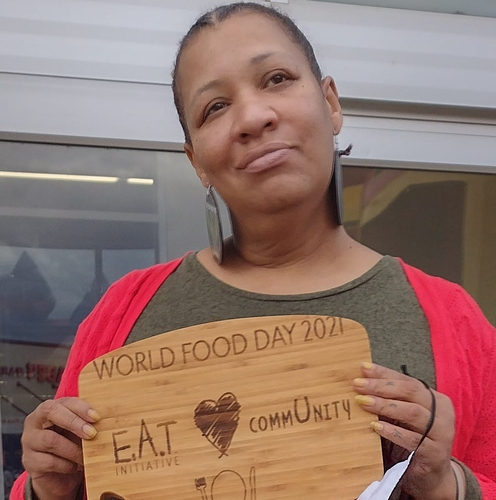 WORLD FOOD DAY 2021
E.A.T COMMUNITY
INITIATIVE